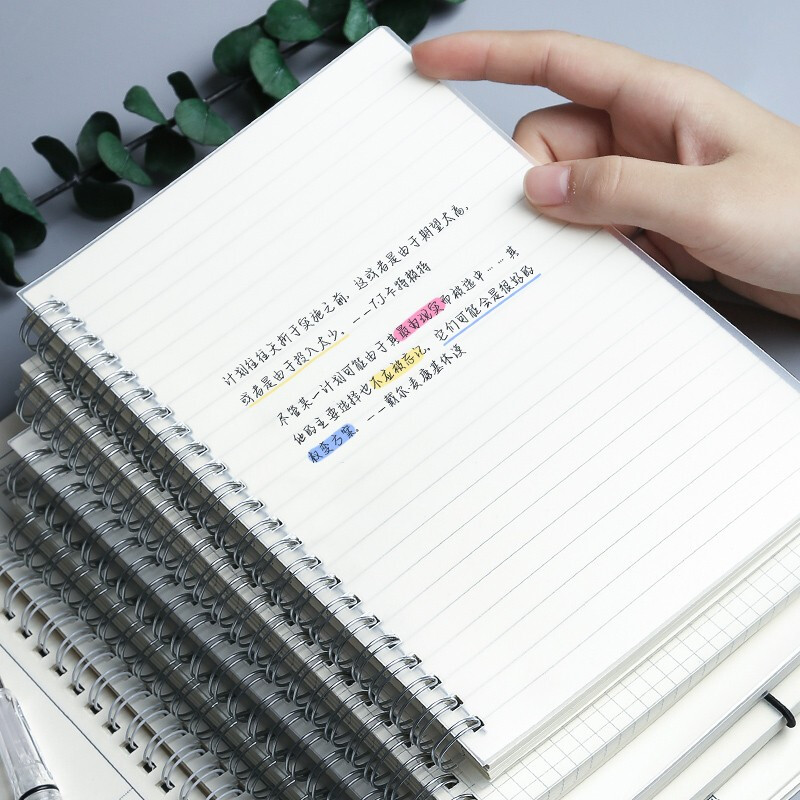 计划往往夭折于实施之前，这或者是由于期望太高，
或者是由于投入太少。——T.J.卡特赖特
尽管某一计划可能由于其最切现实而被选中……其
他的主要选择也不应被忘记，它们可能会是很好的
权变方案。——戴尔麦康基休谟